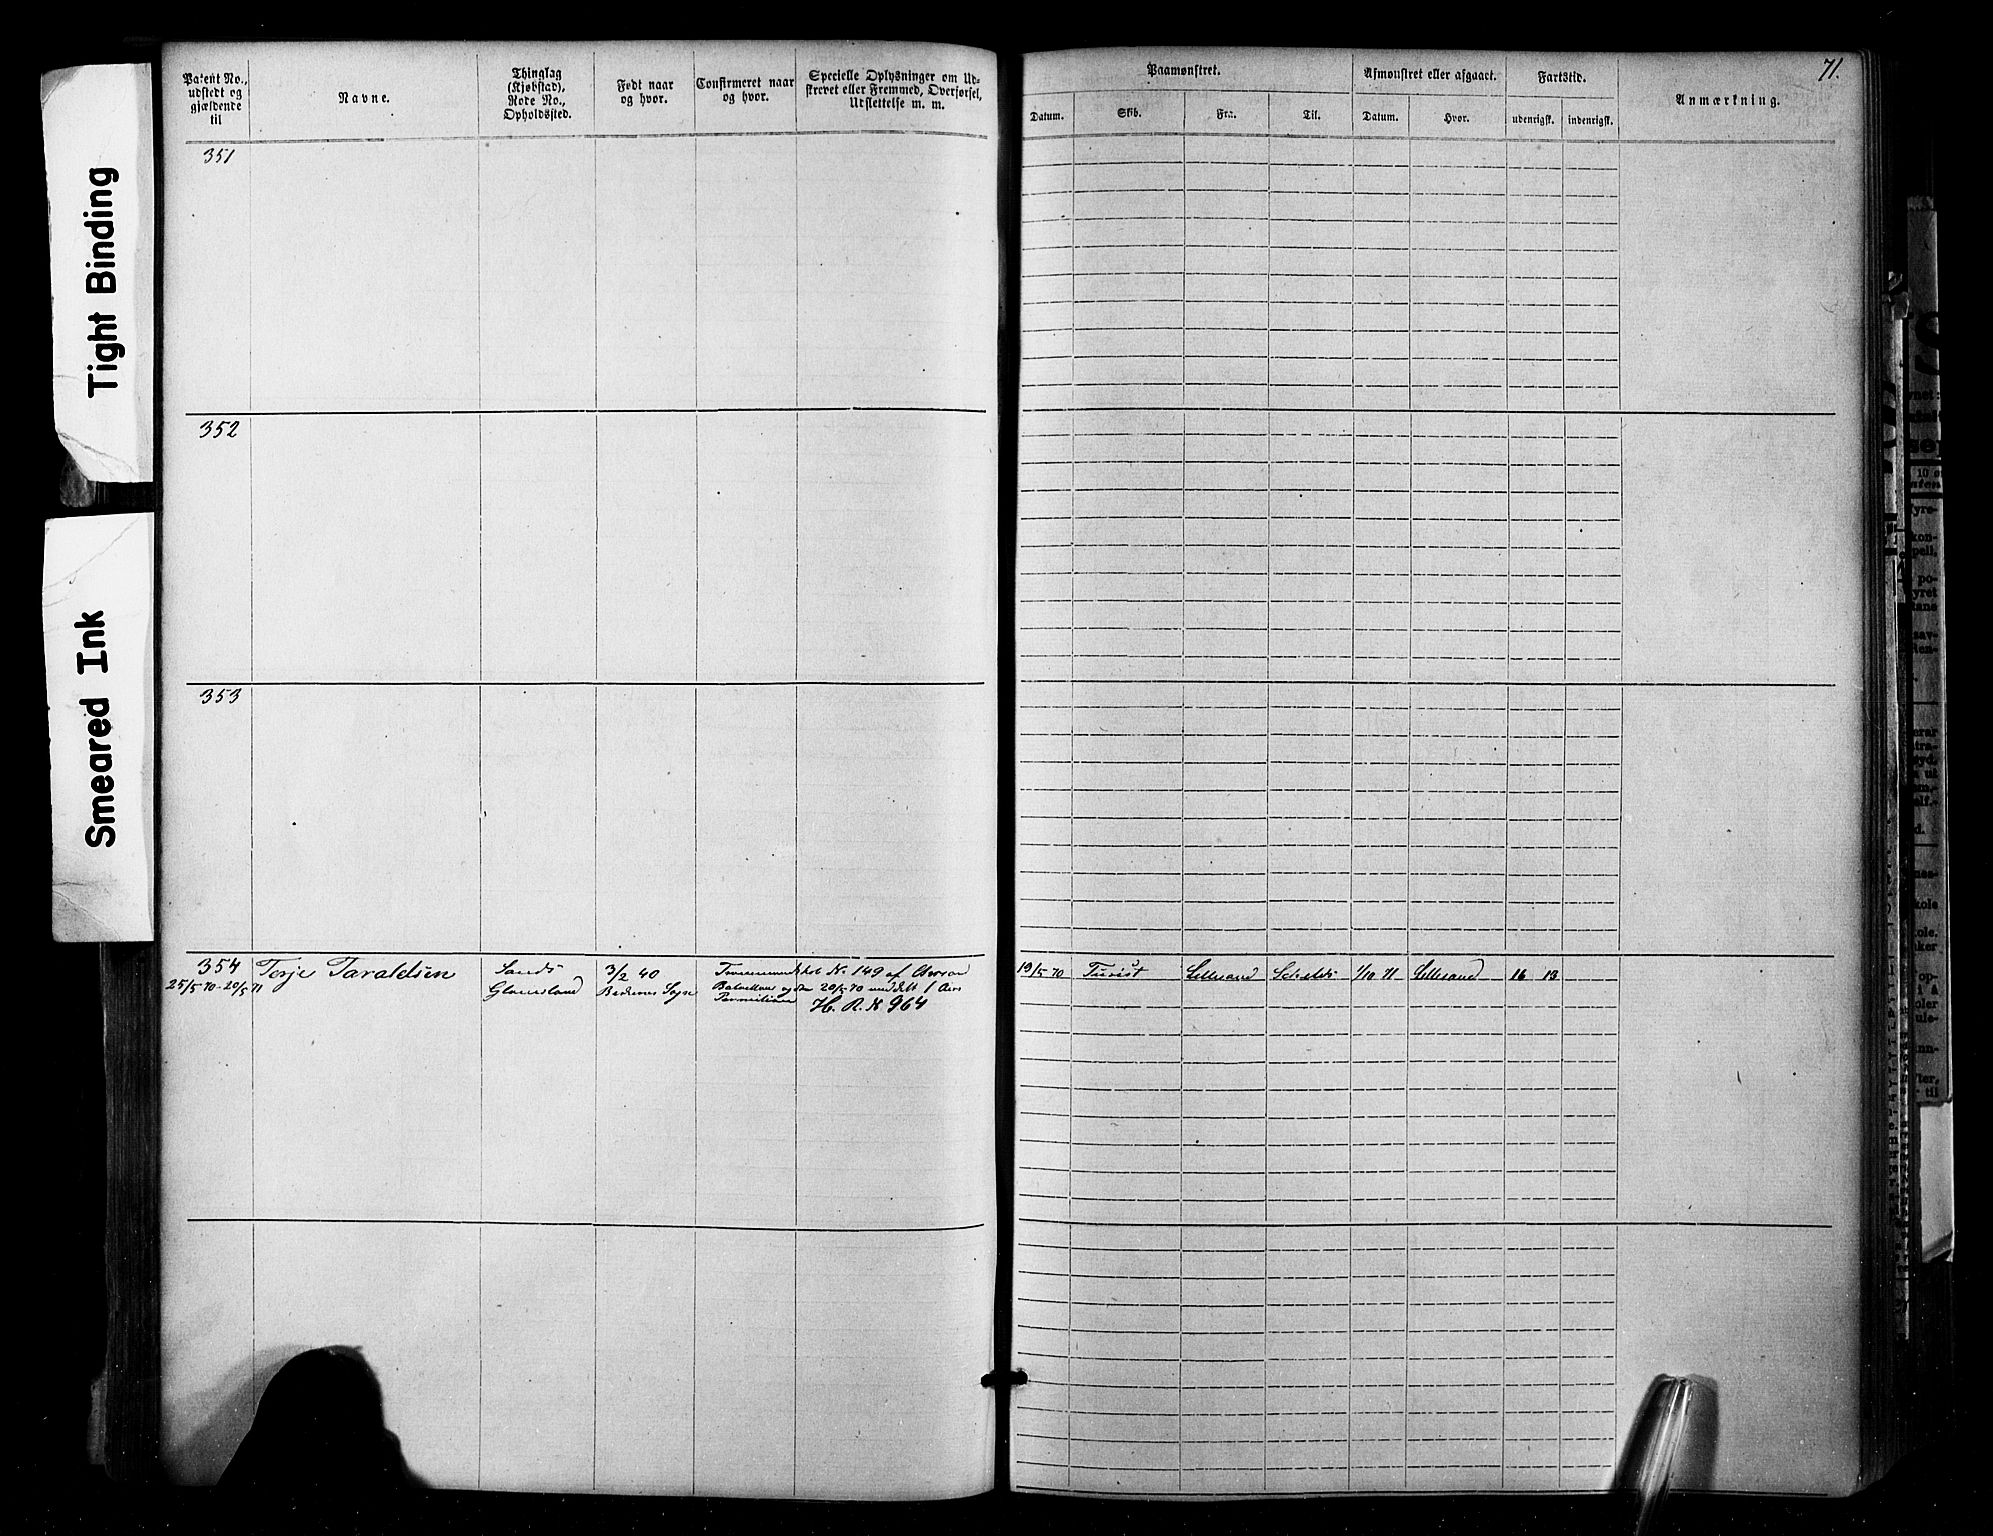 Tight Binding
Smeared Ink
71.
Patent No., udstedt og gjældende til
Navne.
Thinglag (Kjøbstad), Rode No., Opholdssted.
Født naar og hvor.
Confirmeret naar og hvor.
Specielle Oplysninger om Udskrevet eller Fremmed, Overførsel, Udslettelse m. m.
Paamønstret.
Datum.
Skib.
Fra.
Til.
Afmønstret eller afgaaet.
Datum.
Hvor.
Fartstid.
udenrigsk.
indenrigsk.
Anmærkning.
351
352
353
354
25/5 70 - 20/5 71
Terje Taraldsen
Sands
Glamsland
3/2 40
Sogn
No. 149 af
20/5 70 meddelt 1 Aars
H. R. N 964
19/5 70
Turist
Lillesand
1/10 71
Lillesand
16 13